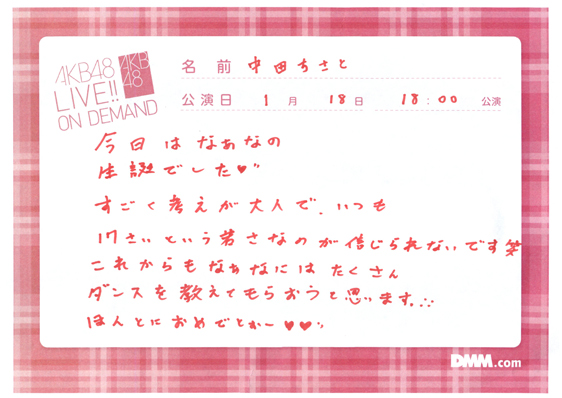 AKB48
LIVE!!
ON DEMAND
AKB
48
名 前 中田ちさと
公演日 1 月 18 日 18:00 公演
今日はなぁなの
生誕でした♥
すごく考えが大人で、いつも
17さいという若さなのが信じられないです笑
これからもなぁなにはたくさん
ダンスを教えてもらおうと思います∴
ほんとにおめでとかー♥♥
DMM.com